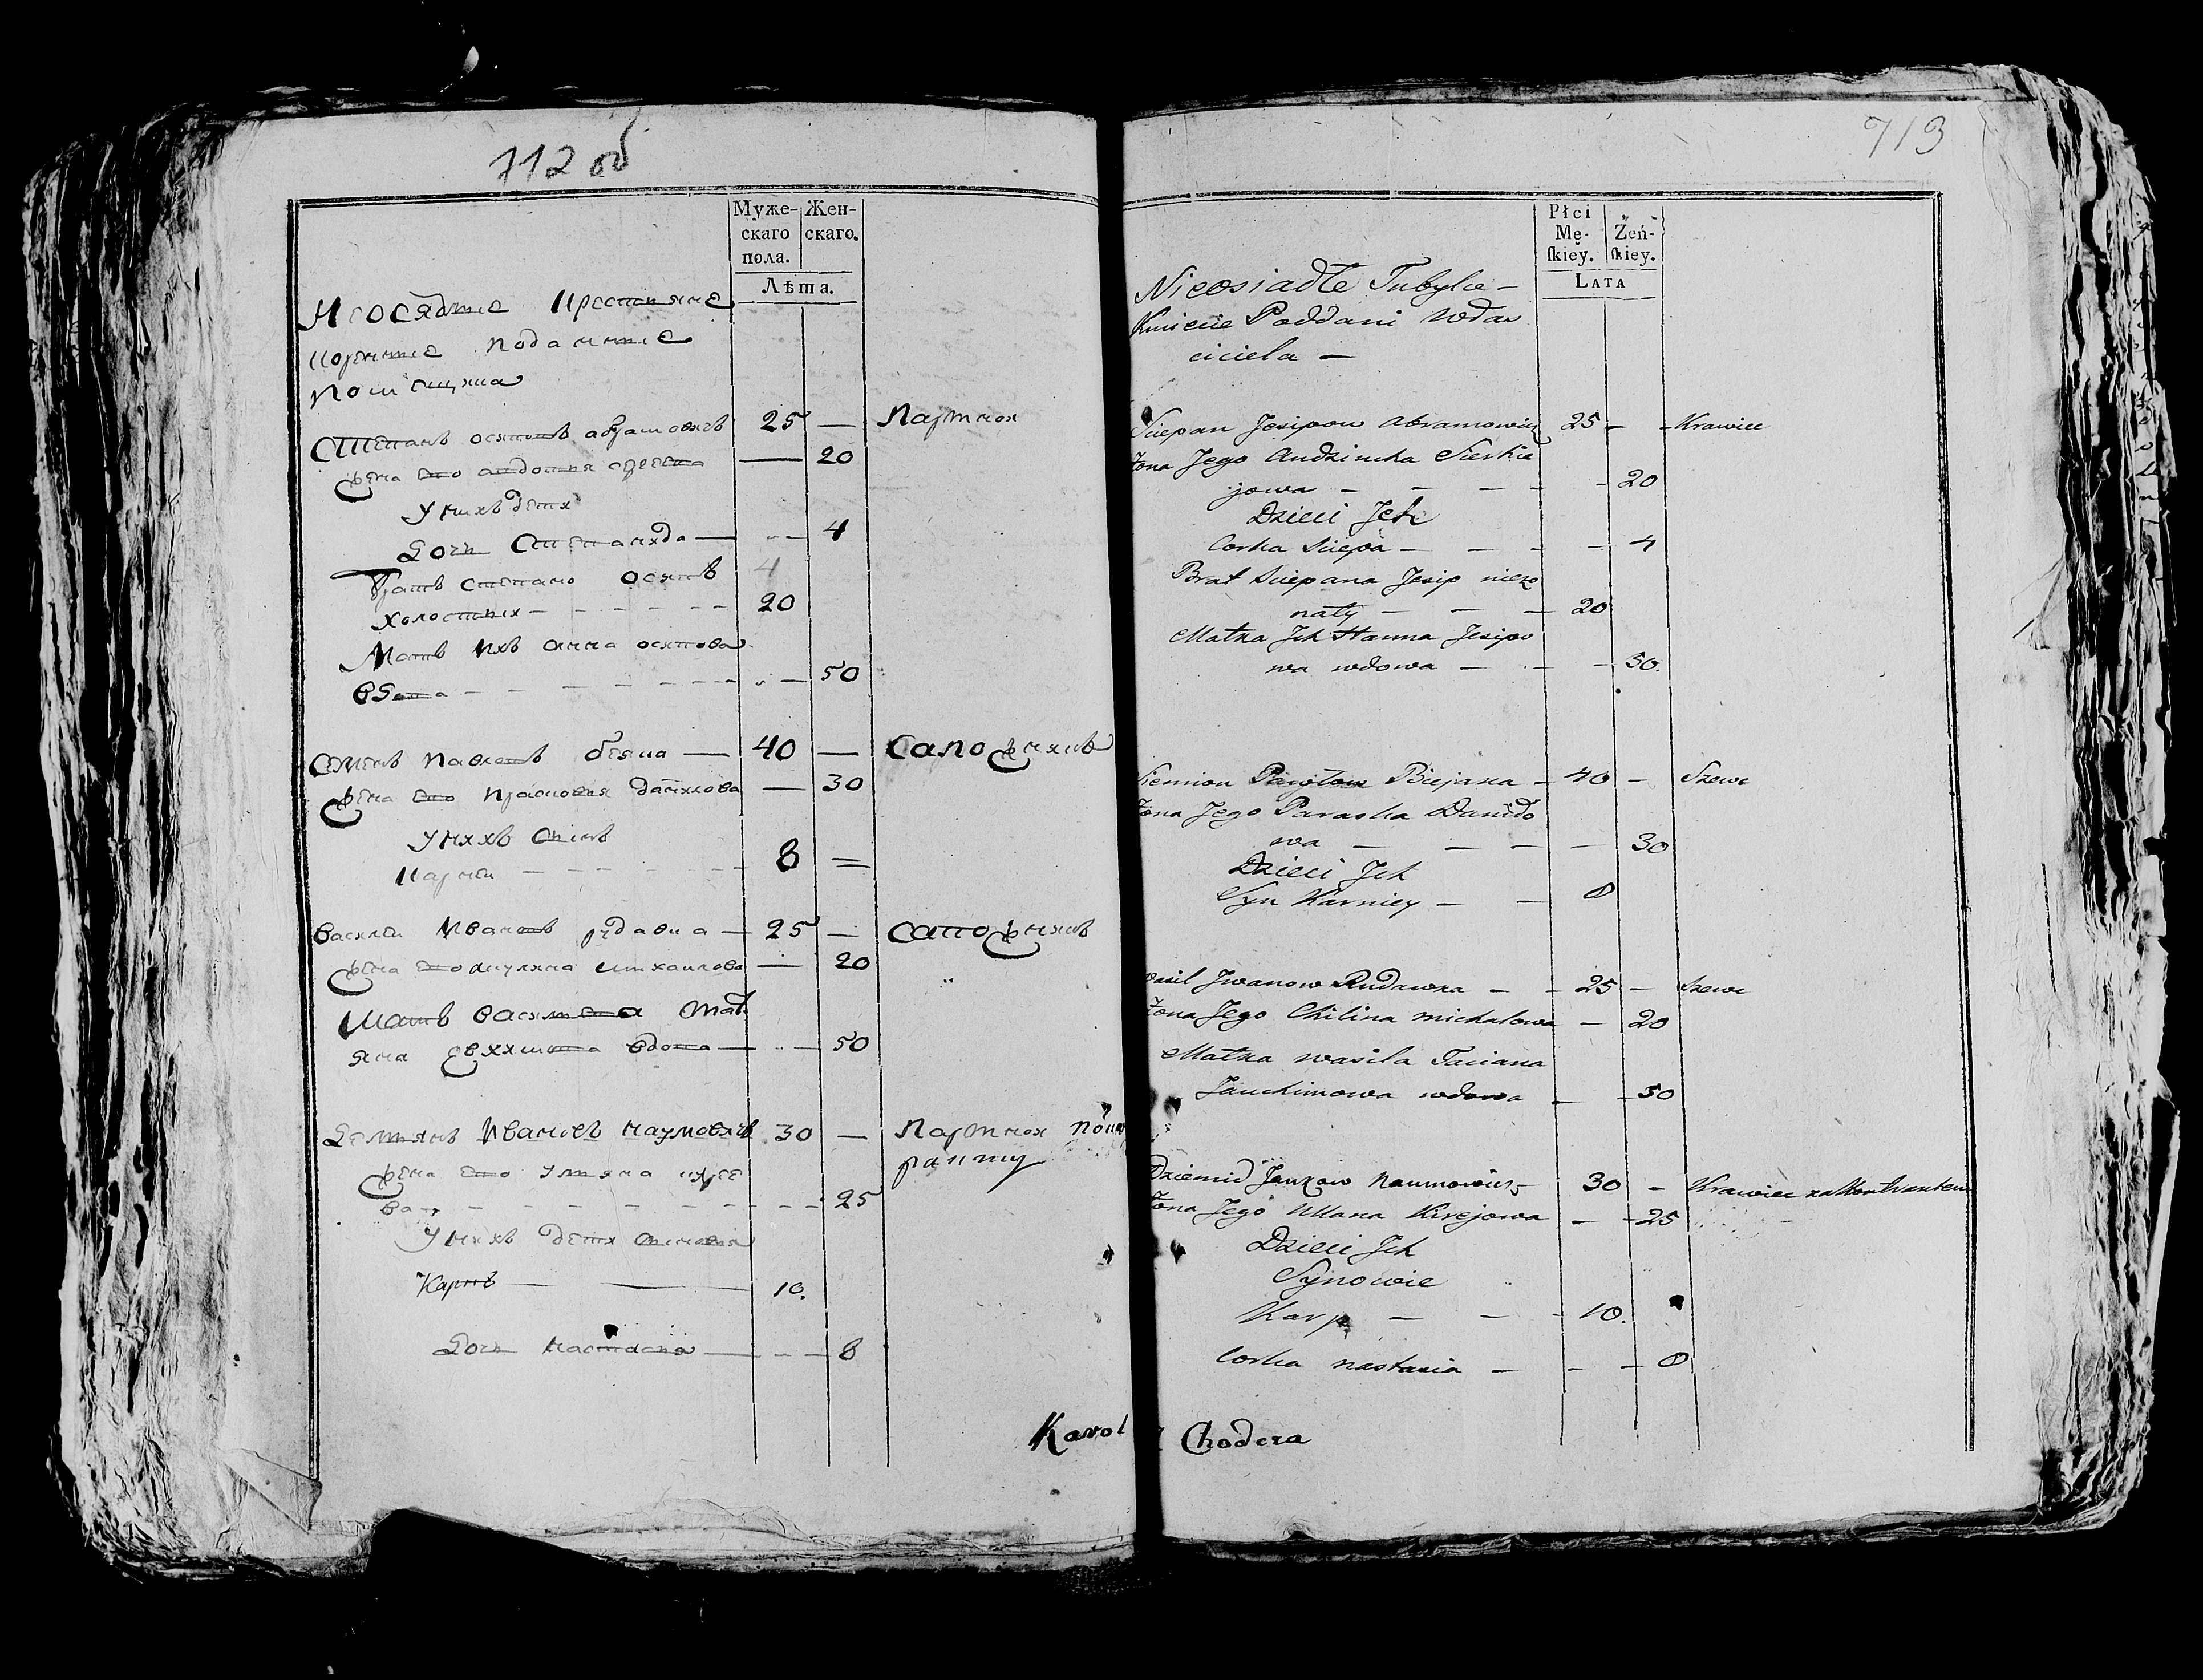 712 об
Муже-
скаго
пола.
Жен-
скаго.
Лѣта.
Неосядлые Крестьяне
коренные подданные
помещика
Степанъ осиповъ абрамовичъ 25 — Партной
жена его авдотья — 20
У нихъ дети
Дочь Степанида — - - 4
Братъ степана осипъ 4
холостый - - - - - - 20
Мать ихъ анна осипова
вдова - - - - - - - - 50
Семенъ павловъ беяка — 40 — Сапожникъ
жена его прасковья данилова — 30
У нихъ сынъ
Карней - - - - - 8 =
Василей Ивановъ рудавка — 25 — сапожникъ
жена его акулина михаилова — 20
Мать василья тать
яна евхимова вдова — - - 50
Демьянъ Ивановъ наумовичъ 30 — Партной
жена его ульяна кирее
ва - - - - - - - - - 25
У нихъ дети сыновья
Карпъ — — 10.
Дочь настасия — - - 8
Karol
713
Płci
Mę-
ſkiey.
Żeń-
ſkiey.
LATA
Nieosiadłe Tubylce -
Kmiecie Poddani wdas
ciciela —
Sciepan Jesipow Abramowicz 25 - - Krawiec
Żona Jego Audziucha Sierhie
jowa - - - - - 20
Dzieci Jch
Corka Sciepa - - - - 4
Brat Sciepana Jesip niezo
naty - - - 20
Matka Jch Hanna Jesipo
wa wdowa - - - 50.
Siemion Biejaka - 40 - Szewc
Żona Jego Paraska Daniło
wa - - - - - 30
Dzieci Jch
Syn Karniey - - 8
Wasil Jwanow Rudawka - - 25 - Szewc
Żona Jego Chilina michałowa - 20
Matka wasila Taciana
Jauchimowa wdowa - - 50
Dziemid Jankow Naumowicz - 30 - Krawiec za Kontraktem
Żona Jego Ullana Kirejowa - - 25
Dzieci Jch
Synowie
Karp - - - 10.
Corka nastazia - - - 8
Chodcza